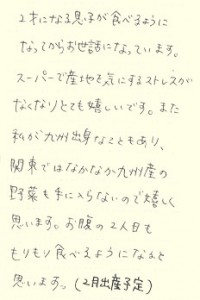 2才になる息子が食べるように
なってからお世話になっています。
スーパーで産地を気にするストレスが
なくなりとても嬉しいです。また
私が九州出身なこともあり、
関東ではなかなか九州産の
野菜も手に入らないので嬉しく
思います。お腹の2人目も
もりもり食べるようになると
思います。(2月出産予定)